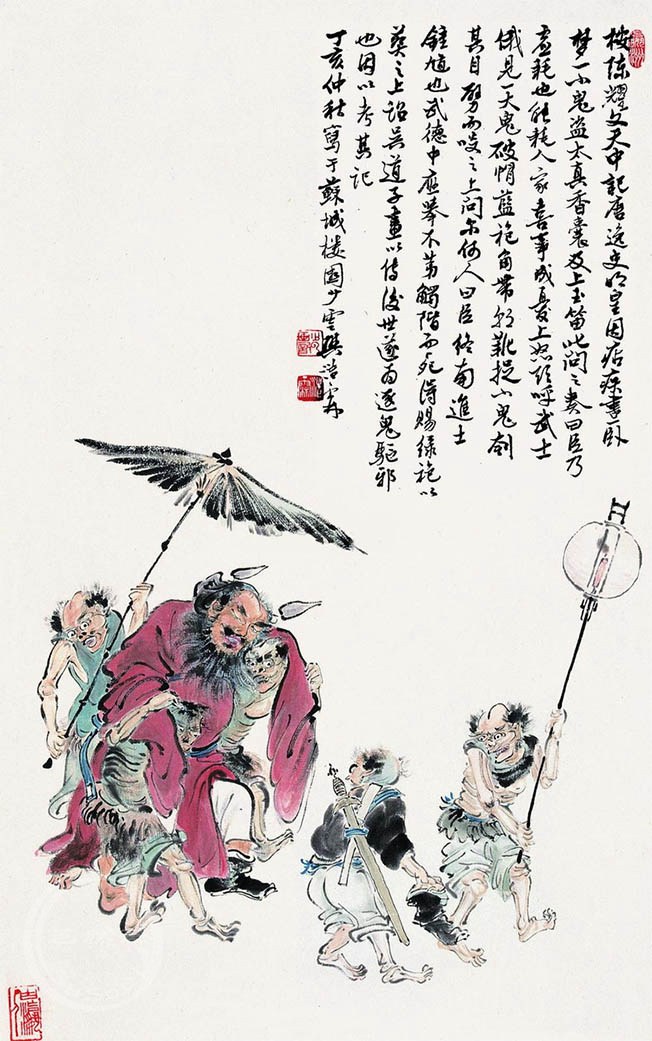 按陈耀文天中記唐逸史明皇因痁疾晝臥
梦一小鬼盗太真香囊及上玉笛此問之奏曰臣乃
虚耗也能耗人家喜事成憂上怒欲呼武士
俄見一大鬼破帽藍袍角带朝靴捉小鬼刳
其目劈而啖之上問尔何人曰臣终南進士
鍾馗也武德中應举不第觸階而死得赐绿袍以
葵之上詔吴道子畫以傳後世遂为逐鬼驱邪
也因以考其記
丁亥仲秋寫于蘇城楼園少雲